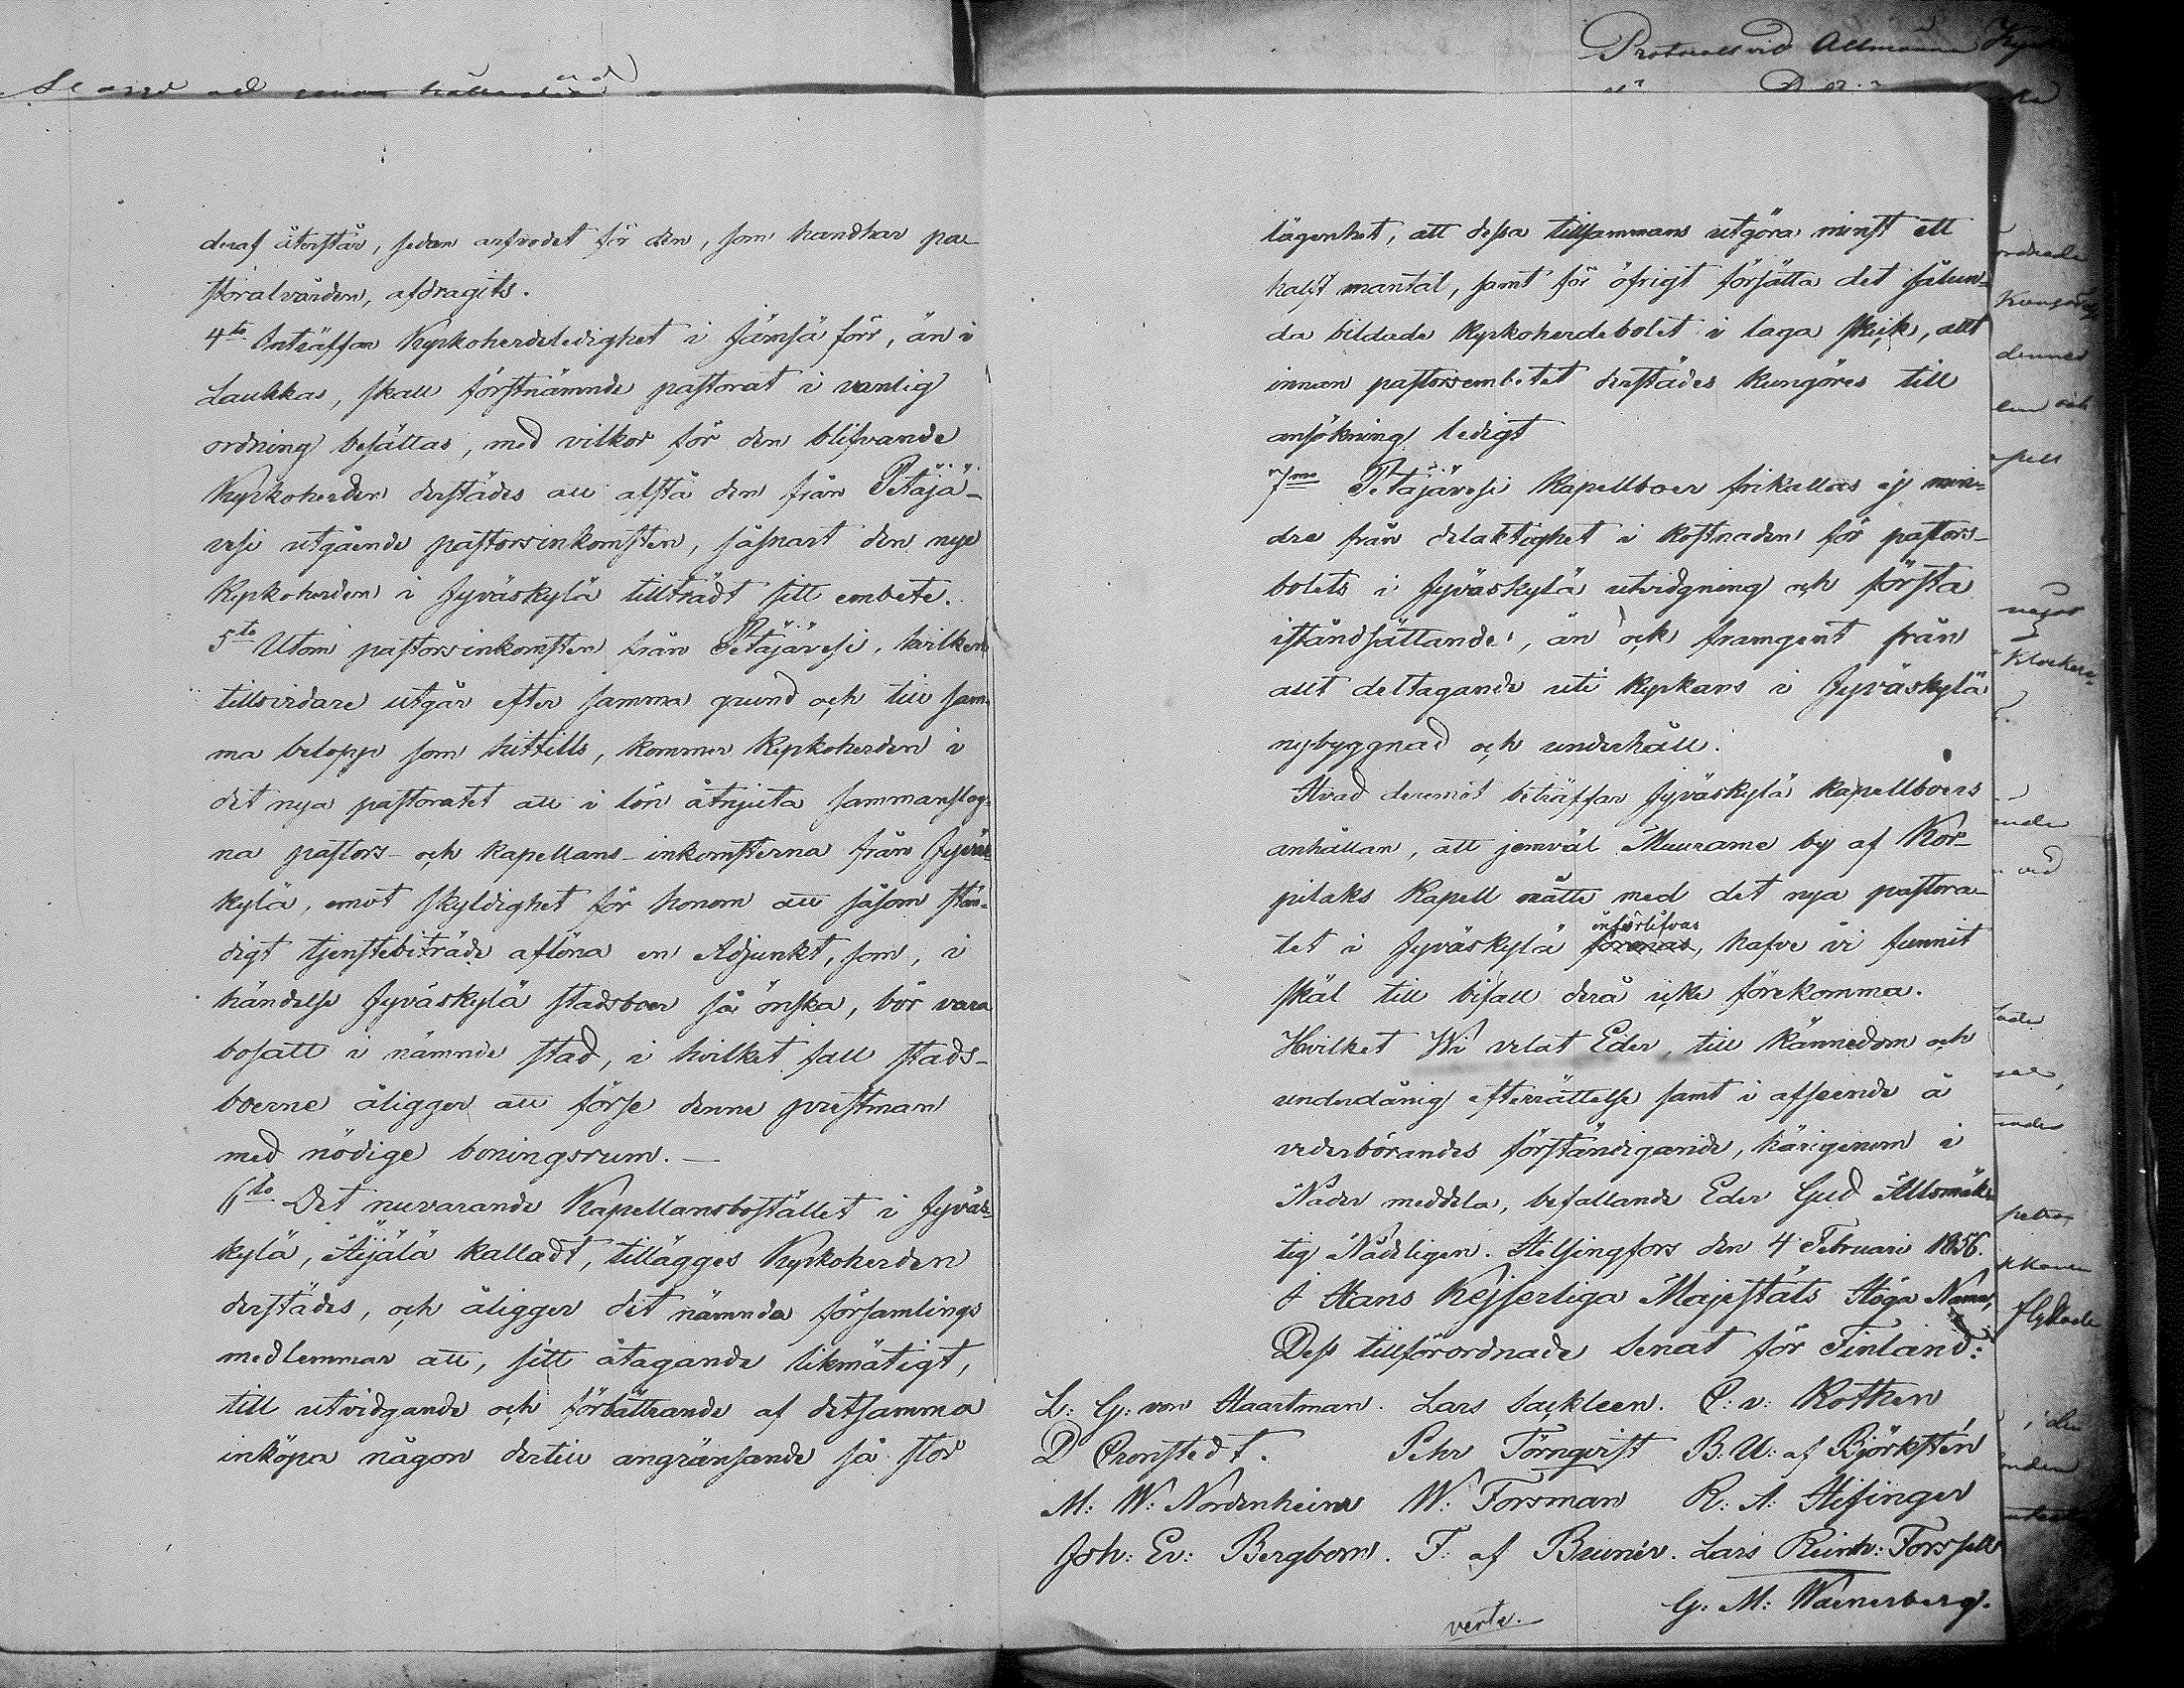 Protocoll vid Allmänna
deraf återstår, sedan arfvodet för den, som handhar pa-
storalvården, afdragits.
4to Inträffar Kyrkoherdeledighet i Jämsä förr, än i
Laukkas, skall förstnämnde pastorat i vanlig
ordning besättas, med vilkor för den blifvande
Kyrkoherden derstädes att afstå den från Petäjä-
vesi utgående pastorsinkomsten, såsnart den nye
Kyrkoherden i Jyväskylä tillträdt sitt embete.
5to Utom pastorsinkomsten från Petäjävesi, hvilken
tillsvidare utgår efter samma grund och till sam-
ma belopp som hittills, kommer Kyrkoherden i
det nya pastoratet att i lön åtnjuta sammanslag-
na pastors- och kapellans-inkomsterna från Jyväs-
kylä, emot skyldighet för honom att såsom stän-
digt tjenstebiträde aflöna en Adjunkt, som, i
händelse Jyväskylä stadsboer så önska, bör vara
bosatt i nämnde stad, i hvilket fall stads-
boerne åligger att förse denne prestman
med nödige boningsrum. —
6to Det nuvarande Kapellansbostället i Jyväs-
kylä, Äijälä kalladt, tillägges Kyrkoherden
derstädes, och åligger det nämnda församlings
medlemmar att, sitt åtagande likmätigt,
till utvidgande och förbättrande af detsamma
inköpa någon dertill angränsande så stor
lägenhet, att dessa tillsammans utgöra minst ett
halft mantal, samt för öfrigt försätta det sålun-
da bildade Kyrkoherdebolet i laga skick, allt
innan pastorsembetet derstädes kungöres till
ansökning ledigt
7mo Petäjävesi Kapellboer frikallas ej min-
dre från delaktighet i kostnaden för pastors-
bolets i Jyväskylä utvidgning och första
iståndsättande, än ock framgent från
allt deltagande uti kyrkans i Jyväskylä
nybyggnad och underhåll.
Hvad deremot beträffar Jyväskylä kapellboers
anhållan, att jemväl Muurame by af Kor-
pilaks Kapell måtte med det nya pastora-
införlifvas
tet i Jyväskylä förenas, hafve vi funnit
skäl till bifall derå icke förekomma.
Hvilket Wi velat Eder, till kännedom och
underdånig efterrättelse samt i afseende å
vederbörandes förständigande, härigenom i
Nåder meddela, befallande Eder Gud Allsmäk-
tig Nådeligen. Helsingfors den 4 Februari 1856.
I Hans Kejserliga Majestäts Höga Namn,
Dess tillförordnade Senat för Finland:
L: G: von Haartman. Lars Sackleen. C: v: Kothen
D Cronstedt. Pehr Törnqvist B: U: af Björkstén
M: W: Nordenheim W: Forsman R: A: Hisinger
Joh: Er: Bergbom. F: af Brunér. Lars Reinh: Forssell
G: M: Wænerberg.
verte.